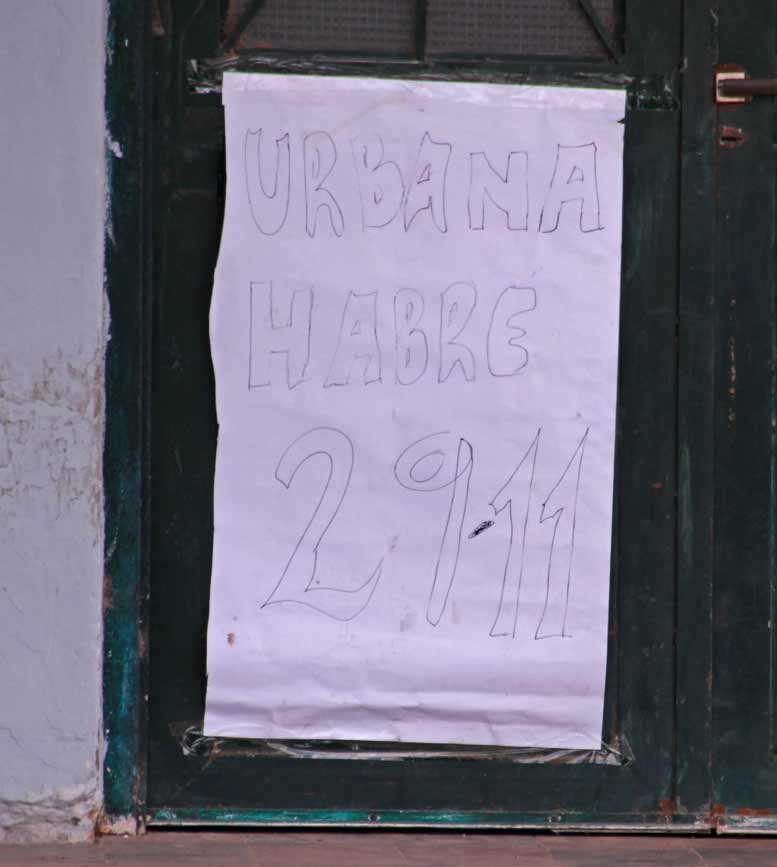 URBANA
HABRÉ
29-11